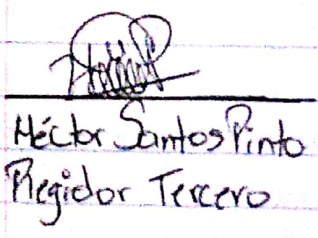 Héctor Santos Pinto
Regidor Tercero